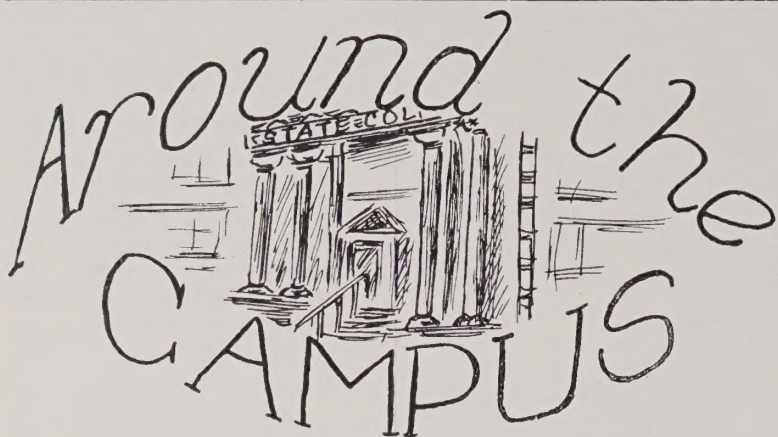 Around the
STATE COL
CAMPUS